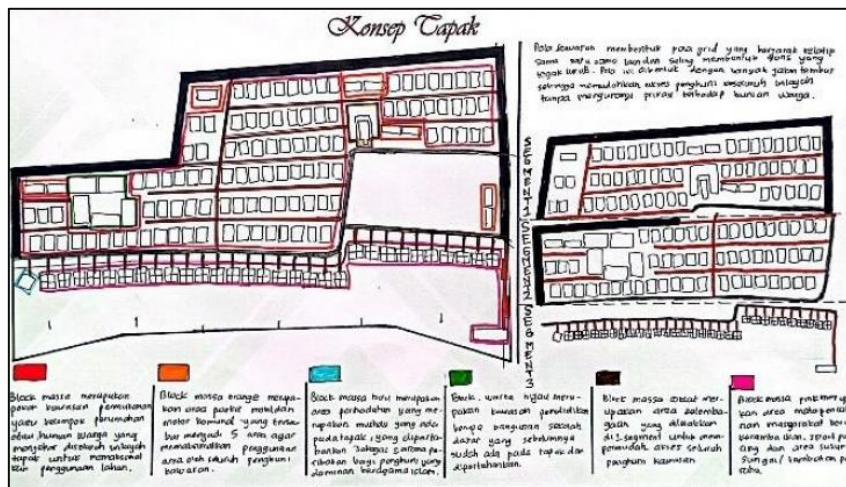 Konsep Tapak
Pola kawasan membentuk pola grid yang berjarak relatif
sama satu sama lain dan saling membentuk garis yang
tegak lurus. Pola ini dibentuk dengan banyak jalan tembus
sehingga memudahkan akses penghuni keseluruh wilayah
tanpa mengurangi privasi terhadap hunian warga.
SEGMENT 1
SEGMENT 2
SEGMENT 3
Block massa merupakan
kawasan permukiman
yaitu kelompok perumahan
atau hunian warga yang
menyebar diseluruh wilayah
tapak untuk memaksimal
penggunaan lahan.
Block massa orange merupa-
kan area parkir mobil dan
motor komunal yang terse-
bar menjadi 5 area agar
memaksimalkan penggunaan
area oleh seluruh penghuni
kawasan.
Block massa biru merupakan
area peribadatan yang me-
rupakan mushola yang ada
pada tapak, yang diperta-
bankan sebagai sarana pe-
ribadatan bagi penghuni yang
dominan beragama islam.
Block warna hijau meru-
pakan kawasan pendidikan
berupa bangunan sekolah
dasar yang sebelumnya
sudah ada pada tapak dan
dipertahankan.
Block massa coklat mer-
upakan area kelemba-
gaan yang diletakkan
di segment untuk mem-
permudah akses seluruh
penghuni kawasan
Block massa pink merup
kan area mata
masyarakat
dan area
sungai / tambatan